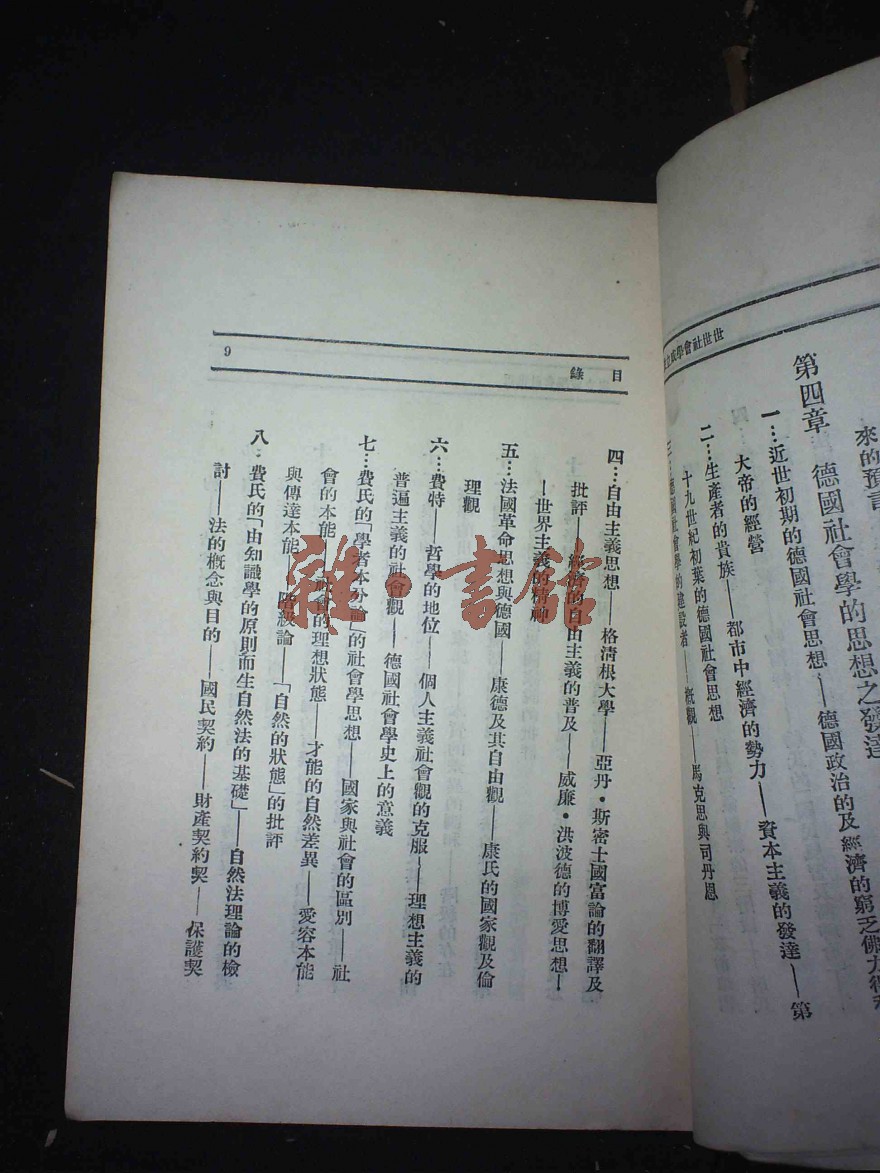 來的預言
第四章 德國社會學的思想之發達
一…近世初期的德國社會思想——德國政治的及經濟的窮乏佛力得利
大帝的經營
二…生產者的貴族——都市中經濟的勢力——資本主義的發達——第
十九世紀初葉的德國社會思想
三…德國社會學的建設者——概觀——馬克思與司丹恩
目 錄 9
四…自由主義思想——格淸根大學——亞丹·斯密士國富論的翻譯及
批評——經濟的自由主義的普及——威廉·洪波德的博愛思想—
—世界主義的精神
五…法國革命思想與德國——康德及其自由觀——康氏的國家觀及倫
理觀
六…費特——哲學的地位——個人主義社會觀的克服——理想主義的
普遍主義的社會觀——德國社會學史上的意義
七…費氏的「學者本分論」的社會學思想——國家與社會的區別——社
會的本能——社會的理想狀態——才能的自然差異——愛容本能
與傳達本能——階級論——「自然的狀態」的批評
八…費氏的「由知識學的原則而生自然法的基礎」——自然法理論的檢
討——法的概念與目的——國民契約——財產契約契——保護契
雜·書館